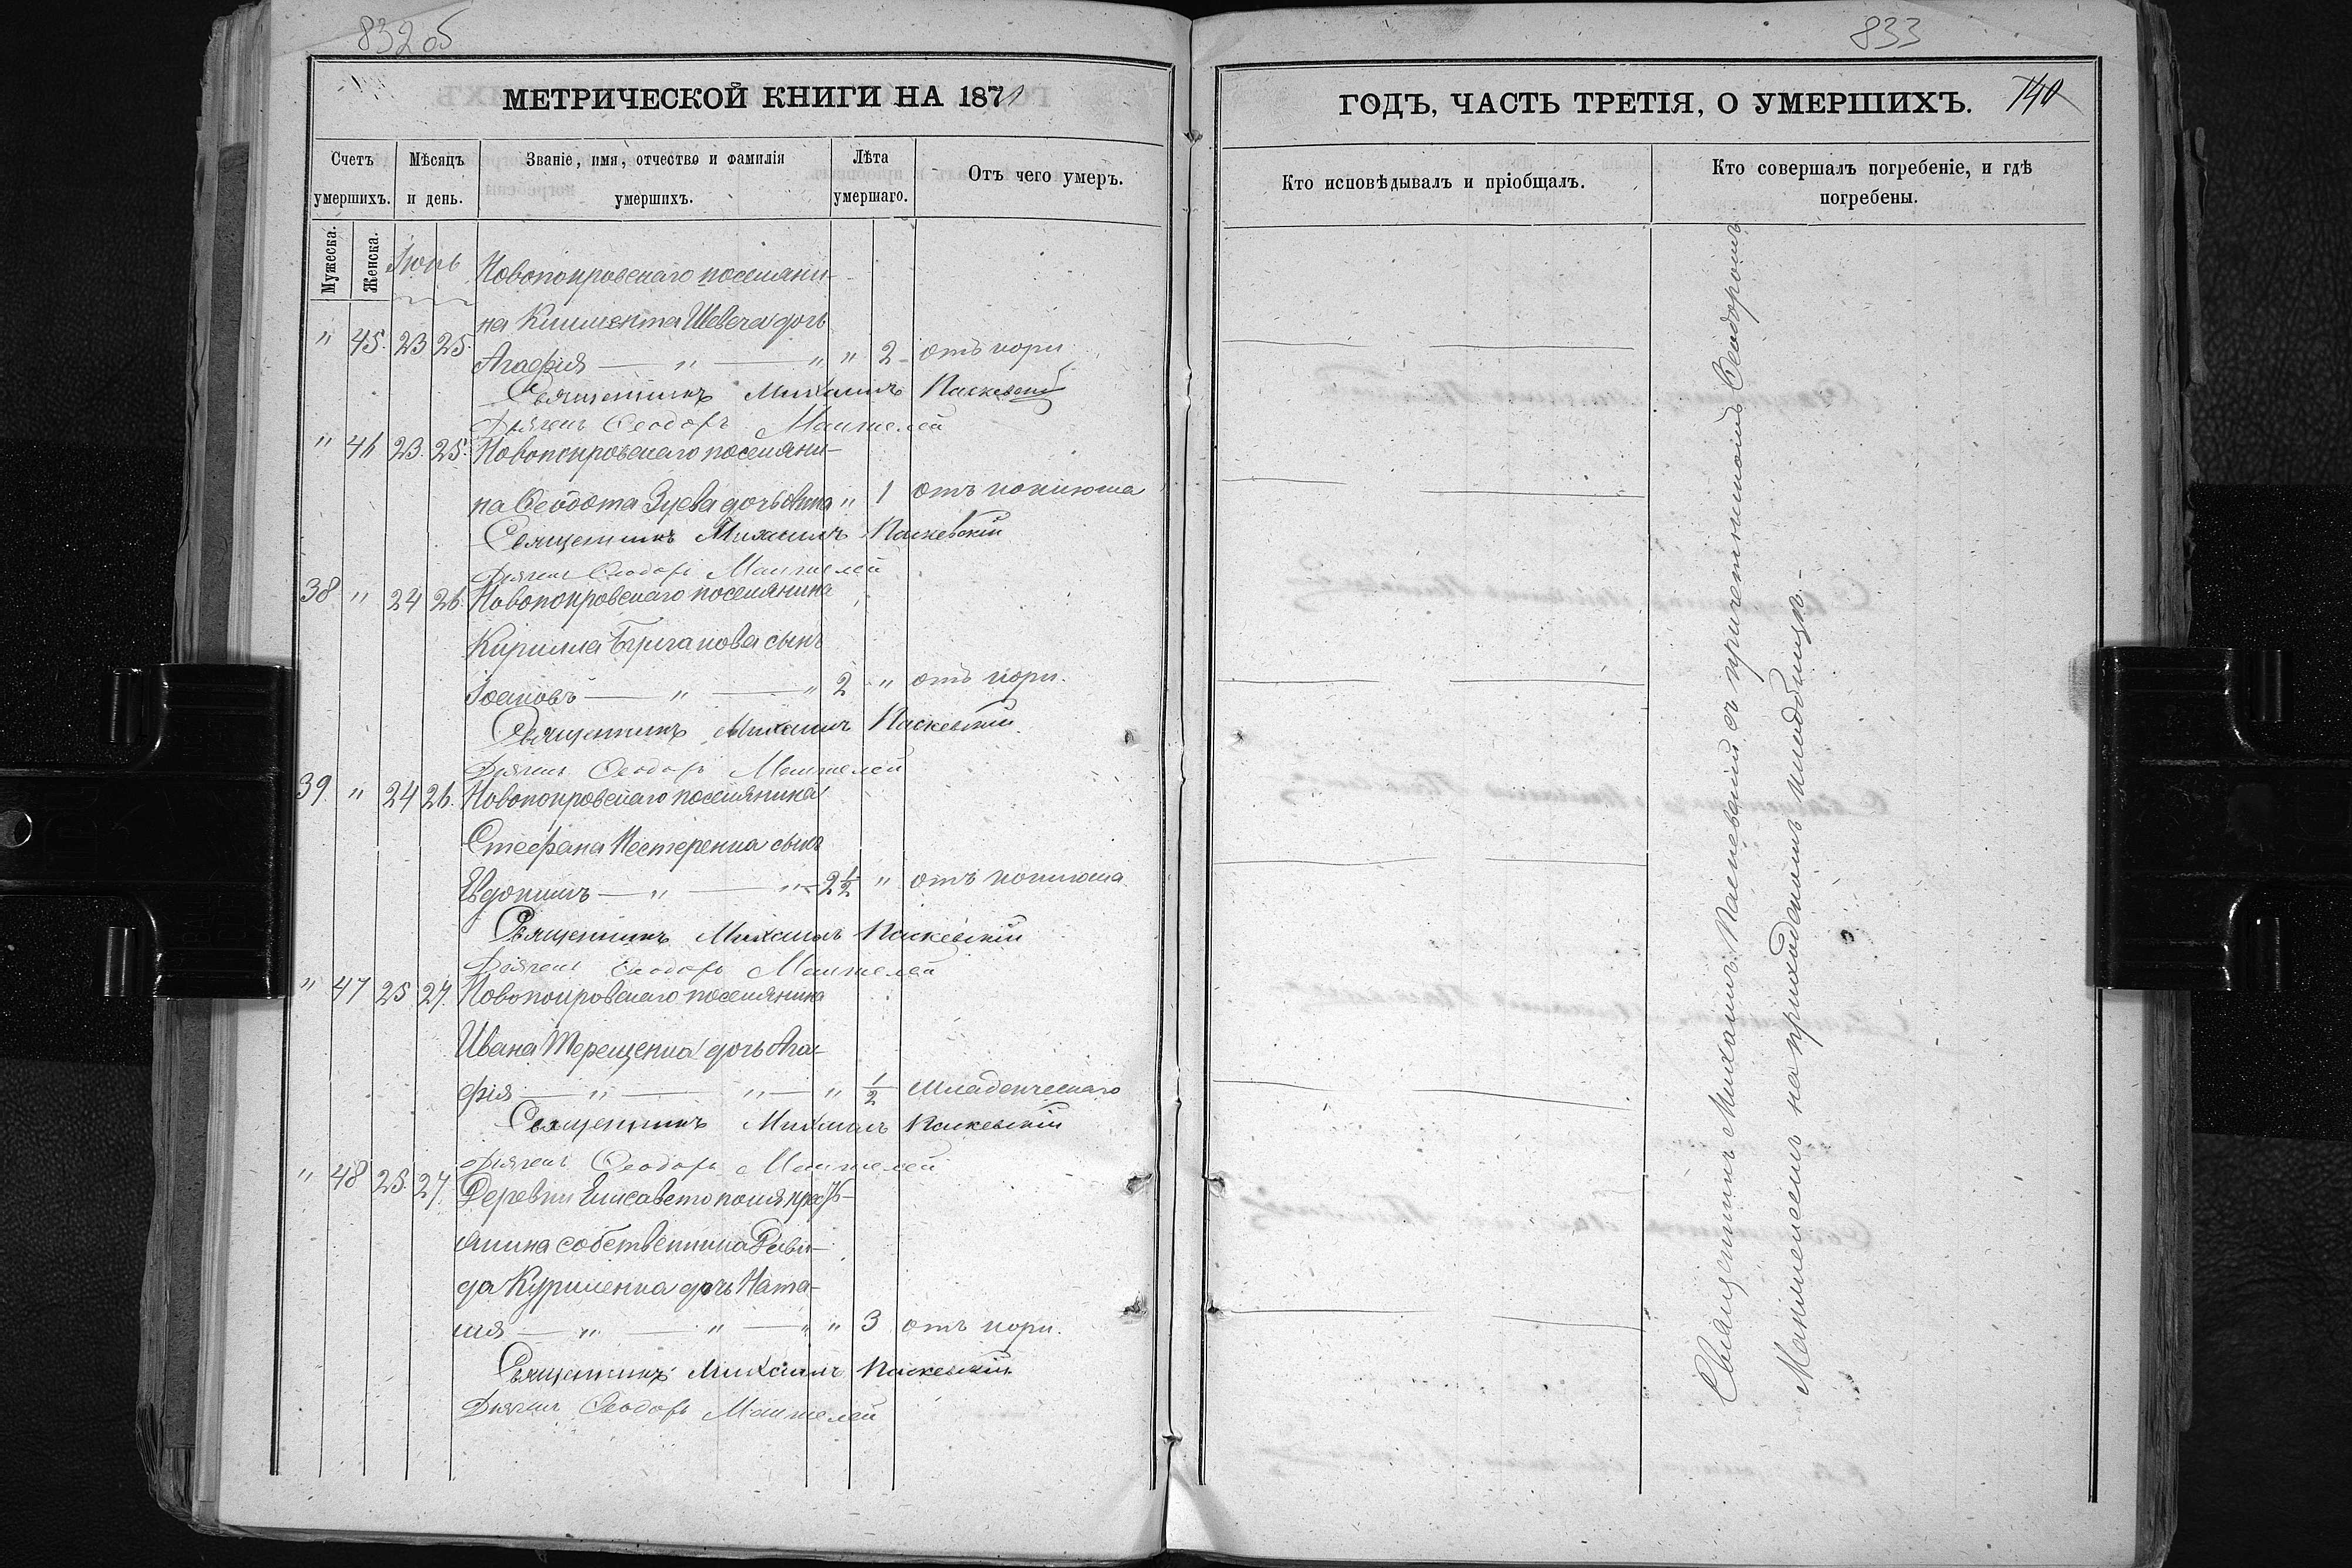 832 об
МЕТРИЧЕСКОЙ КНИГИ НА 1871
Счетъ умершихъ.
Мѣсяцъ и день.
Званіе, имя, отчество и фамилія умершихъ.
Лѣта умершаго.
Отъ чего умеръ.
Мужеска.
Женска.
Новопокровскаго поселяни-
на Климента Шевеча дочь
" 45. 23 25. Агафія — " — " " 2 отъ кори
Священникъ Михаилъ Паскевскій
Дьячекъ Ѳеодоръ Мантелей
" 46 23. 25. Новопокровскаго поселяни-
на Ѳеодота Зуева дочь Анна " 1 отъ коклюша
Священникъ Михаилъ Паскевскій
Дьячекъ Ѳеодоръ Мантелей
38 " 24 26. Новопокровскаго поселянина
Кирилла сынъ
" — " 2 " отъ кори.
Священникъ Михаилъ Паскевскій
Дьячекъ Ѳеодоръ Мантелей
39. " 24 26. Новопокровскаго поселянина
Стефана Нестеренка сынъ
Евдокимъ — " — " — 2½ " отъ коклюша
Священникъ Михаилъ Паскевскій
Дьячекъ Ѳеодоръ Мантелей
" 47 25 27. Новопокровскаго поселянина
Ивана Терещенка дочь Ага-
фія — " — " — " ½ Младенческаго
Священникъ Михаилъ Паскевскій
Дьячекъ Ѳеодоръ Мантелей
" 48 25. 27. Деревни Елисаветополя крестъ-
янина собственника Дави-
да Куриленка дочь Ната-
лія — " — " — " " 3 отъ кори.
Священникъ Михаилъ Паскевскій
Дьячекъ Ѳеодоръ Мантелей
833
ГОДЪ, ЧАСТЬ ТРЕТІЯ, О УМЕРШИХЪ.
140
Кто исповѣдывалъ и пріобщалъ.
Кто совершалъ погребеніе, и гдѣ погребены.
Священникъ Михаилъ Паскевскій съ причетникомъ Ѳеодоромъ
Мантелеемъ на приходскомъ кладбищѣ.